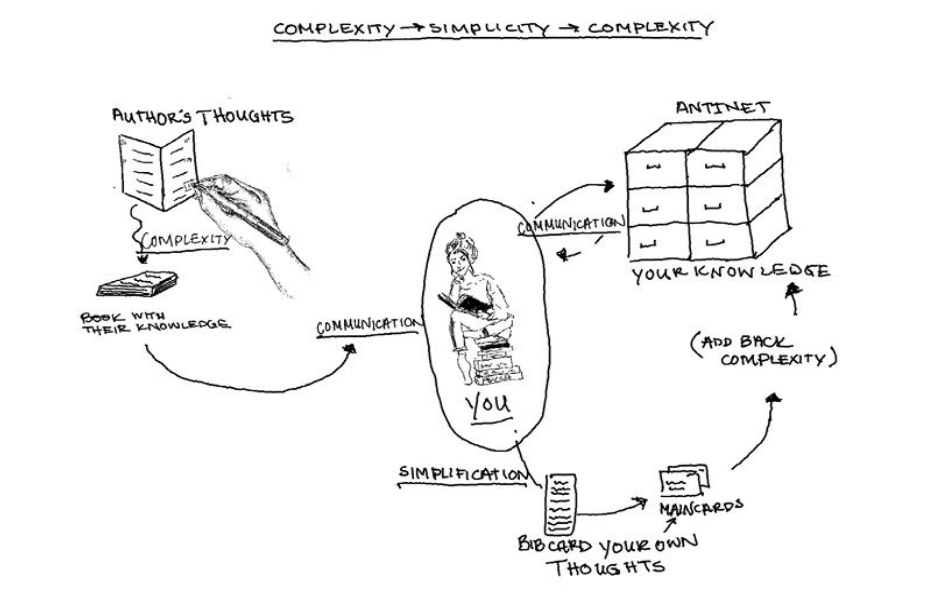 COMPLEXITY → SIMPLICITY → COMPLEXITY
AUTHOR'S THOUGHTS
COMPLEXITY
BOOK WITH
THEIR KNOWLEDGE
COMMUNICATION
YOU
ANTINET
COMMUNICATION
YOUR KNOWLEDGE
(ADD BACK
COMPLEXITY)
SIMPLIFICATION
MAINCARDS
BIBCARD YOUR OWN
THOUGHTS